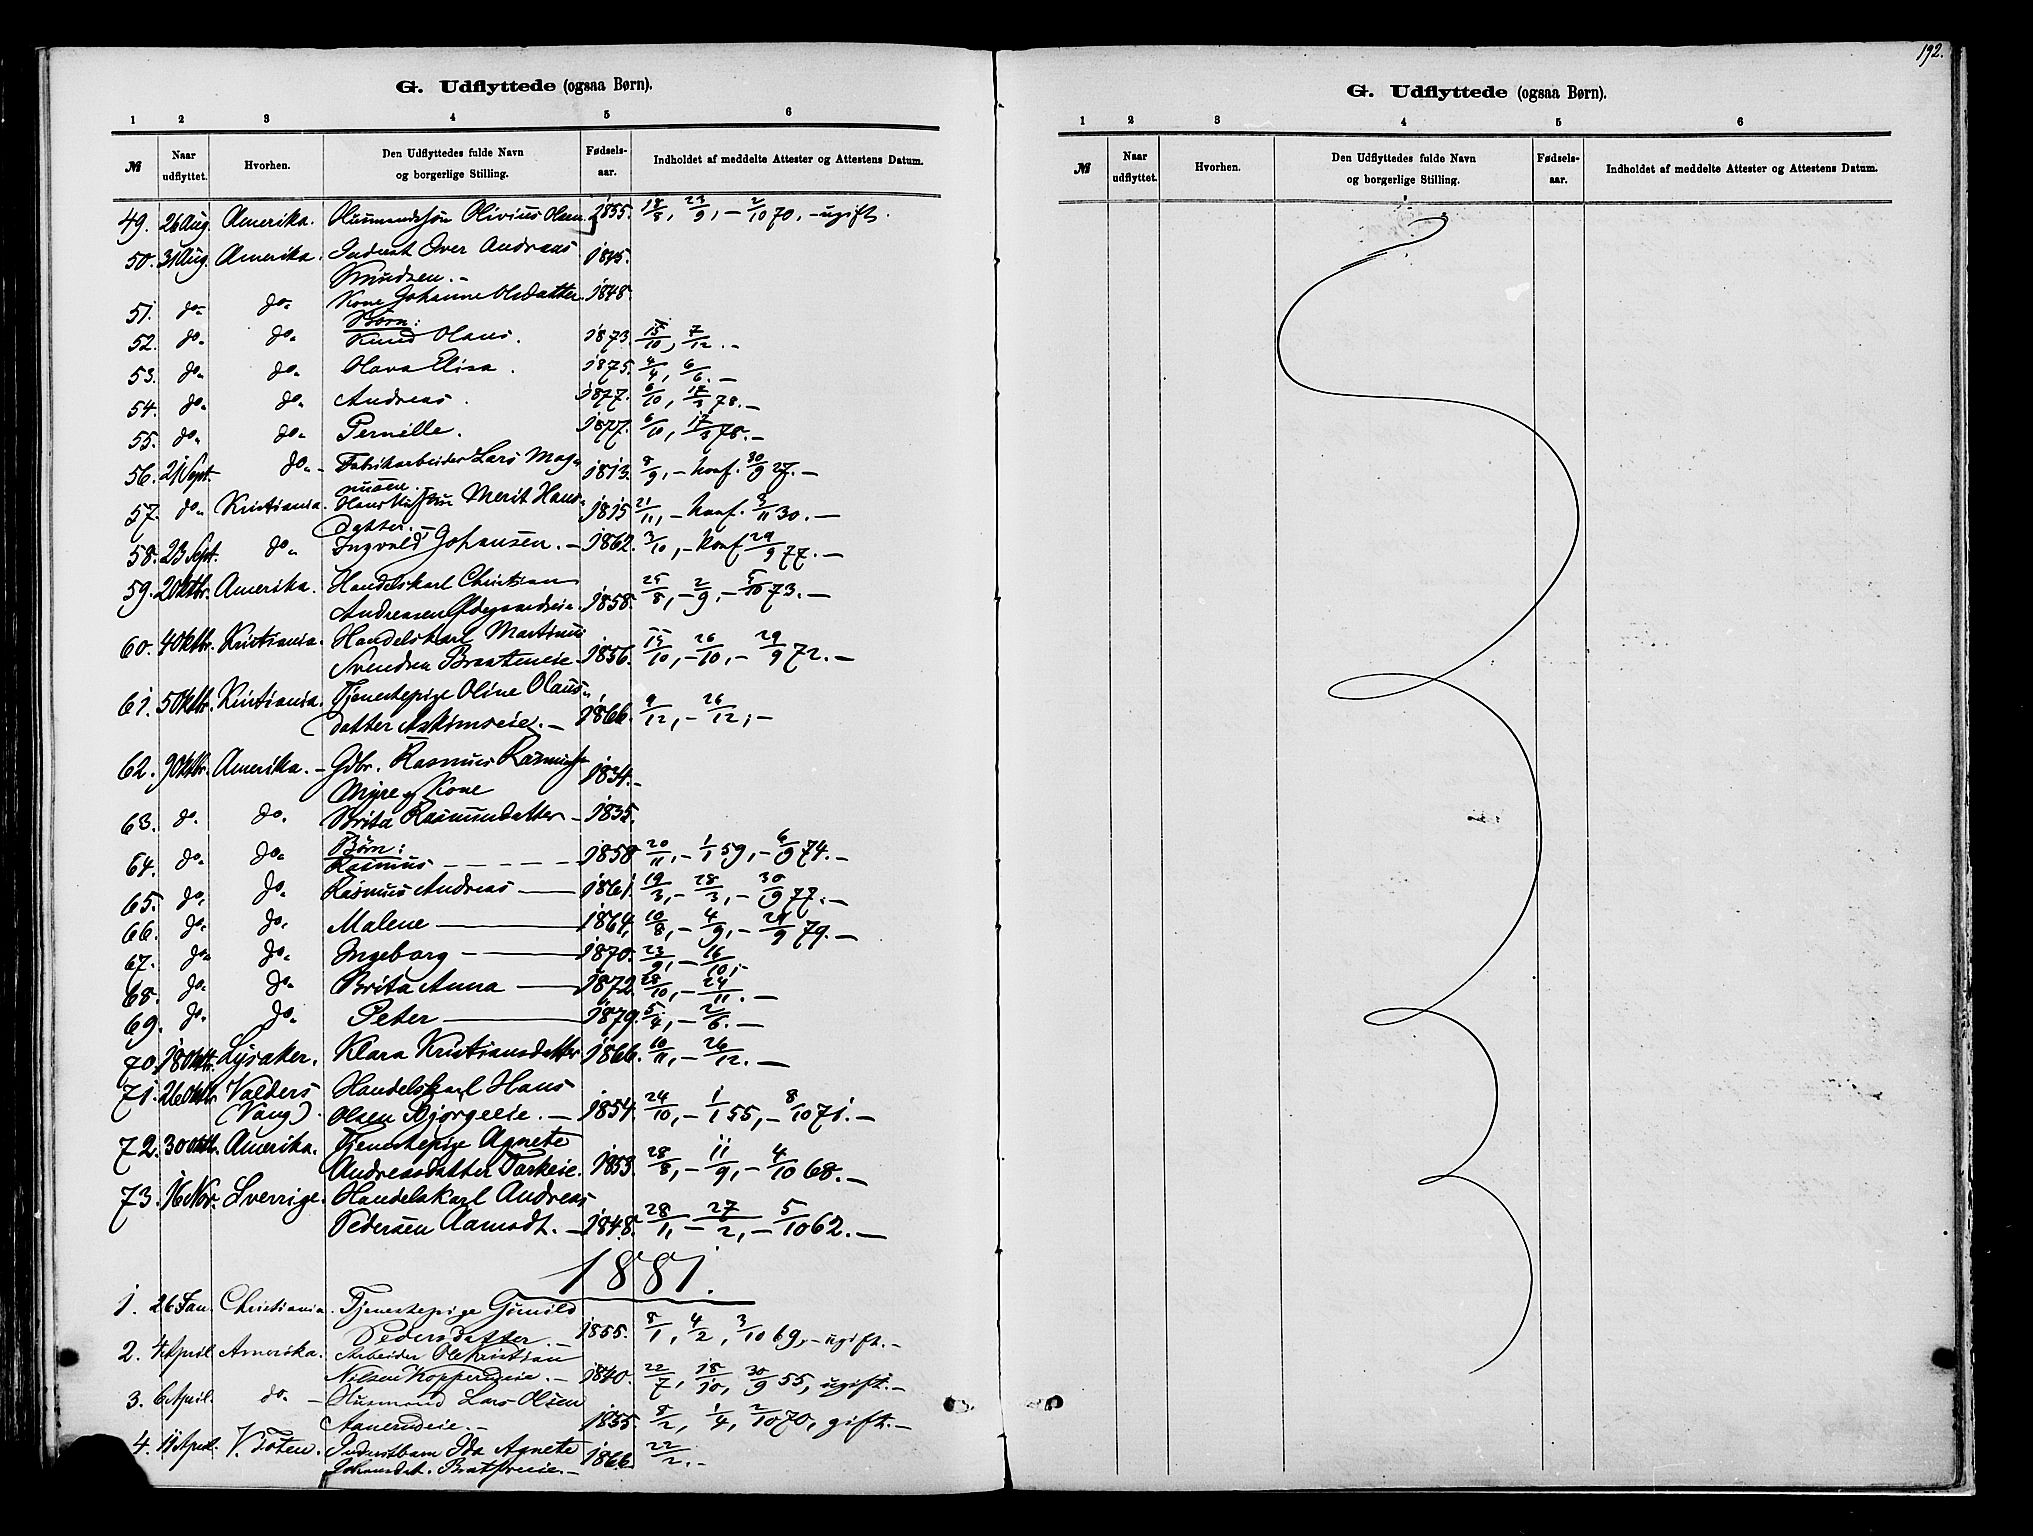 G. Udflyttede (ogsaa Børn).
1 2 3 4 5 6
№ Naar udflyttet. Hvorhen. Den Udflyttedes fulde Navn og borgerlige Stilling. Fødsels-aar. Indholdet af meddelte Attester og Attestens Datum.
49. 26 Aug. Amerika. Husmandssøn Olivius Olsen 1855. 18/8, 23/9, – 2/10 70, – ugift.
50. 31 Aug. Amerika. Inderst Iver Andreas
Knudsen. – 1845.
51. do. do. Kone Johanne Olsdatter 1848.
Børn:
52. do. do. Knud Olaus. 1873. 15/10, 7/12. –
53. do. do. Olava Elisa. 1875. 4/4, 6/6. –
54. do. do. Andreas. 1877. 6/10, 17/3 78. –
55. do. do. Pernille. 1877. 6/10, 17/3 78. –
56. 21 Sept. do. – Fabrikarbeider Lars Mag-
nusen. 1813. 8/9, – konf. 30/9 27. –
57. do. Kristiania. Hans Hustru Merit Hans-
datter. – 1815 21/11, – konf. 3/11 30. –
58. 23 Sept. do. Ingvald Johansen. – 1862. 3/10, – konf 29/9 77. –
59. 2 Oktbr. Amerika. Handelskarl Christian
Andreasen Ødegaardseie. 1858. 25/8, – 2/9, – 5/10 73. –
60. 4 Oktbr. Kristiania. Handelskarl Martinus
Svendsen Braateneie. 1856. 15/10, – 26/10, – 29/9 72. –
61. 5 Oktbr. Kristiania. Tjenestepige Oline Olaus-
datter Askimseie. – 1866. 9/12, – 26/12, –
62. 9 Oktbr. Amerika. – Gdbr. Rasmus Rasmus
Myre og Kone 1834. –
63. do. do. Brita Rasmusdatter – 1835.
Børn:
64. do. do. Rasmus – – – – 1858 20/11, – 1/1 59, – 6/9 74. –
65. do. do. Rasmus Andreas — 1861. 19/3, – 28/3, – 30/9 77. –
66. do. do. Malene — 1864. 10/8, – 4/9, – 29/9 79. –
67. do. do. Ingeborg – — 1870. 23/9, – 16/10, –
68. do. do. Brita Anna — 1872. 28/10, – 24/11. –
69. do. do. Peter — 1879. 5/4, – 2/6. –
70. 18 Oktbr. Lysaker. Klara Kristiansdatter 1866. 10/11, – 26/12. –
71. 26 Oktbr. Valders Handelskarl Hans
(Vang). Olsen Bjørgeeie. – 1854. 24/10, – 1/1 55, – 8/10 71. –
72. 30 Oktbr. Amerika. Tjenestepige Agnete
Andreasdatter 1853. 28/8, – 11/9, – 4/10 68. –
73. 16 Nov. Sverrige. Handelskarl Andreas
Pedersen Aamodt. – 1848. 28/1, – 27/2, – 5/10 62. –
1881.
1. 26 Jan. Christiania. Tjenestepige Gunild
Pedersdatter 1855. 8/1, 4/2, 3/10 69, – ugift. –
2. 4 April Amerika. Arbeider Ole Kristian
Nilsen Kopperudeie. – 1840 22/7, 18/10, 30/9 55, ugift. –
3. 6 April. do. – Husmand Lars Olsen
Aanerudeie. – 1855 8/2, 1/4, 2/10 70, gift. –
4. 11 April. V. Toten. Inderstbarn Ida Agnete
Johansdat. 1866 22/2. –
192.
G. Udflyttede (ogsaa Børn).
1 2 3 4 5 6
№ Naar udflyttet. Hvorhen. Den Udflyttedes fulde Navn og borgerlige Stilling. Fødsels-aar. Indholdet af meddelte Attester og Attestens Datum.